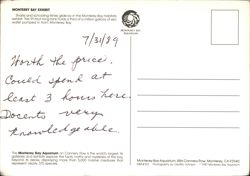 MONTEREY BAY EXHIBIT
Sharks and schooling fishes glide by in the Monterey Bay habitats
exhibit. The 90-foot-long tank holds a third of a million gallons of sea
water pumped in from Monterey Bay.
MONTEREY BAY
AQUARIUM
7/31/89
Worth the price.
Could spend at
least 3 hours here.
Docents very
knowledgeable.
The Monterey Bay Aquarium on Cannery Row is the world's largest. Its
galleries and exhibits explore the
beyond. In
represent nearly 525 species.
Monterey Bay Aquarium, 886 Cannery Row, Monterey, CA 93940